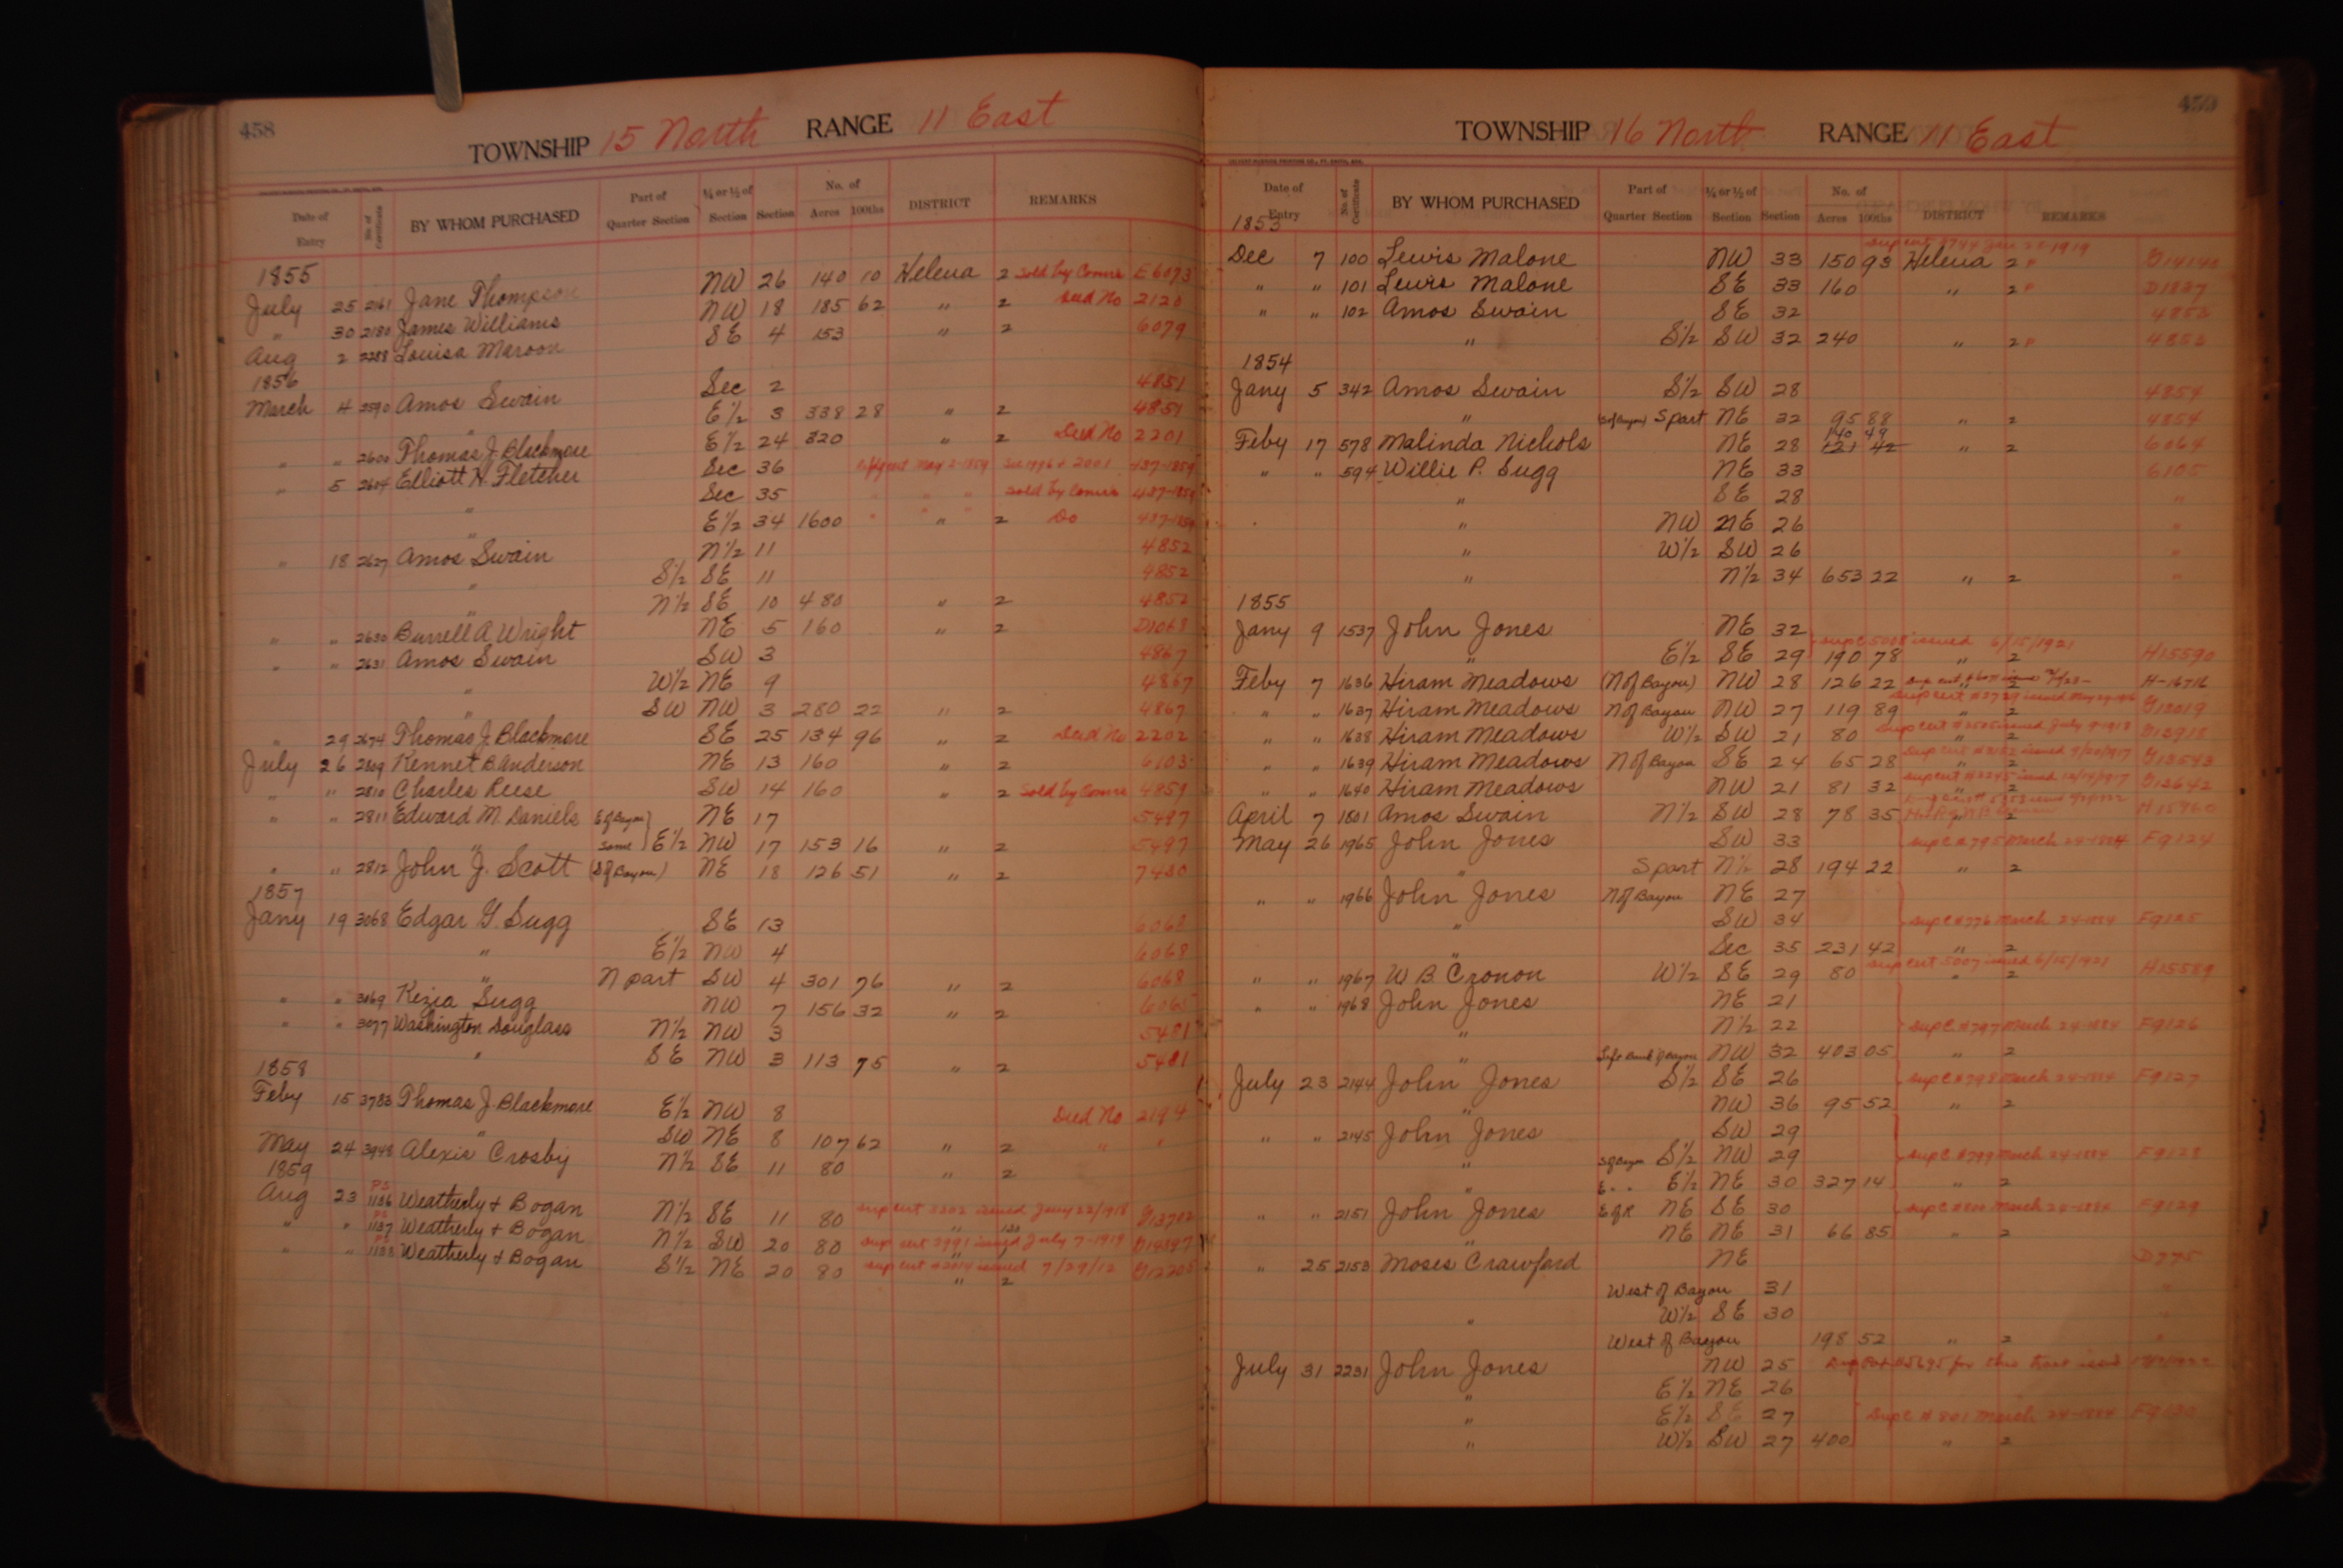 458
TOWNSHIP 15 North RANGE 11 East
Date of Entry No. of Certificate BY WHOM PURCHASED Part of Quarter Section ¼ or ½ of Section Section No. of Acres 100ths DISTRICT REMARKS
1855
July 25 2161 Jane Thompson NW 26 140 10 Helena 2 Sold by Comrs E6073
" 30 2180 James Williams NW 18 185 62 " 2 Deed No 2120
Aug 2 2288 Louisa Maroon SE 4 153 " 2 6079
1856
March 4 2590 Amos Swain Sec 2 4851
" E½ 3 338 28 " 2 4851
" " 2600 Thomas J. Blackmore E½ 24 320 " 2 Deed No 2201
" 5 2604 Elliott H. Fletcher Sec 36 437-1859
" Sec 35 " " " Sold by Comrs 437-1859
" E½ 34 1600 " " 2 Do 437-1859
" 18 2627 Amos Swain N½ 11 4852
" S½ SE 11 4852
" N½ SE 10 480 " 2 4852
" " 2630 Burrell A. Wright NE 5 160 " 2 D1068
" " 2631 Amos Swain SW 3 4867
" W½ NE 9 4867
" SW NW 3 280 22 " 2 4867
" 29 2674 Thomas J. Blackmore SE 25 134 96 " 2 Deed No 2202
July 26 2809 Kennet B. Anderson NE 13 160 " 2 6103
" " 2810 Charles Reese SW 14 160 " 2 Sold by Comrs 4859
" " 2811 Edward M. Daniels E of Bayou NE 17 5497
" same E½ NW 17 153 16 " 2 5497
" " 2812 John J. Scott (S of Bayou) NE 18 126 51 " 2 7480
1857
Jany 19 3068 Edgar G. Sugg SE 13 6068
" E½ NW 4 6068
" N part SW 4 301 76 " 2 6068
" " 3069 Kezia Sugg NW 7 156 32 " 2 6065
" " 3077 Washington Douglass N½ NW 3 5481
" SE NW 3 113 75 " 2 5481
1858
Feby 15 3783 Thomas J. Blackmore E½ NW 8 Deed No 2194
" SW NE 8 107 62 " 2 " "
May 24 3948 Alexis Crosby N½ SE 11 80 " 2
1859
Aug 23 PS 1136 Weatherly & Bogan N½ SE 11 80 Sup cert 3302 issued Jany 22/1918 G13702
" " PS 1137 Weatherly & Bogan N½ SW 20 80 Sup cert 3991 issued July 7-1919 G14397
" " PS 1138 Weatherly & Bogan S½ NE 20 80 Sup cert #2014 issued 7/29/12 G12205
" 2
459
TOWNSHIP 16 North RANGE 11 East
Date of Entry No. of Certificate BY WHOM PURCHASED Part of Quarter Section ¼ or ½ of Section Section No. of Acres 100ths DISTRICT REMARKS
1853
Dec 7 100 Lewis Malone NW 33 150 93 Helena 2 G14140
" " 101 Lewis Malone SE 33 160 " 2 D1827
" " 102 Amos Swain SE 32 4853
" S½ SW 32 240 " 2 4853
1854
Jany 5 342 Amos Swain S½ SW 28 4854
" (S of Bayou) S part NE 32 95 88 " 2 4854
140 49
Feby 17 578 Malinda Nichols NE 28 121 42 " 2 6064
" " 594 Willie P. Sugg NE 33 6105
" SE 28 "
" NW NE 26 "
" W½ SW 26 "
" N½ 34 653 22 " 2 "
1855
Jany 9 1537 John Jones NE 32
Sup C 5008 issued 6/15/1921
" E½ SE 29 190 78 " 2 H15590
Feby 7 1636 Hiram Meadows (N of Bayou) NW 28 126 22 2 H-16716
" " 1637 Hiram Meadows N of Bayou NW 27 119 89 " 2 G13019
" " 1638 Hiram Meadows W½ SW 21 80 " 2 G13918
" " 1639 Hiram Meadows N of Bayou SE 24 65 28 " 2 G13543
" " 1640 Hiram Meadows NW 21 81 32 " 2 G13642
April 7 1801 Amos Swain N½ SW 28 78 35 2 H15960
May 26 1965 John Jones SW 33 Sup C #795 March 24-1884 F9124
" S part N½ 28 194 22 " 2
" " 1966 John Jones N of Bayou NE 27
" SW 34 Sup C #796 March 24-1884 F9125
" Sec 35 231 42 " 2
Sup cert 5007 issued 6/15/1921
" " 1967 W B. Cronon W½ SE 29 80 " 2 H15589
" " 1968 John Jones NE 21
" N½ 22 Sup C #797 March 24-1884 F9126
" NW 32 403 05 " 2
July 23 2144 John Jones S½ SE 26 Sup C #798 March 24-1884 F9127
" NW 36 95 52 " 2
" " 2145 John Jones SW 29
" S of Bayou S½ NW 29 Sup C #799 March 24-1884 F9128
" E " " E½ NE 30 327 14 " 2
" " 2151 John Jones E of R NE SE 30 Sup C #800 March 24-1884 F9129
" NE NE 31 66 85 " 2
" 25 2153 Moses Crawford NE D775
West of Bayou 31
" W½ SE 30
West of Bayou 198 52 " 2
July 31 2231 John Jones NW 25
" E½ NE 26
" E½ SE 27 Sup C #801 March 24-1884 F9130
" W½ SW 27 400 " 2